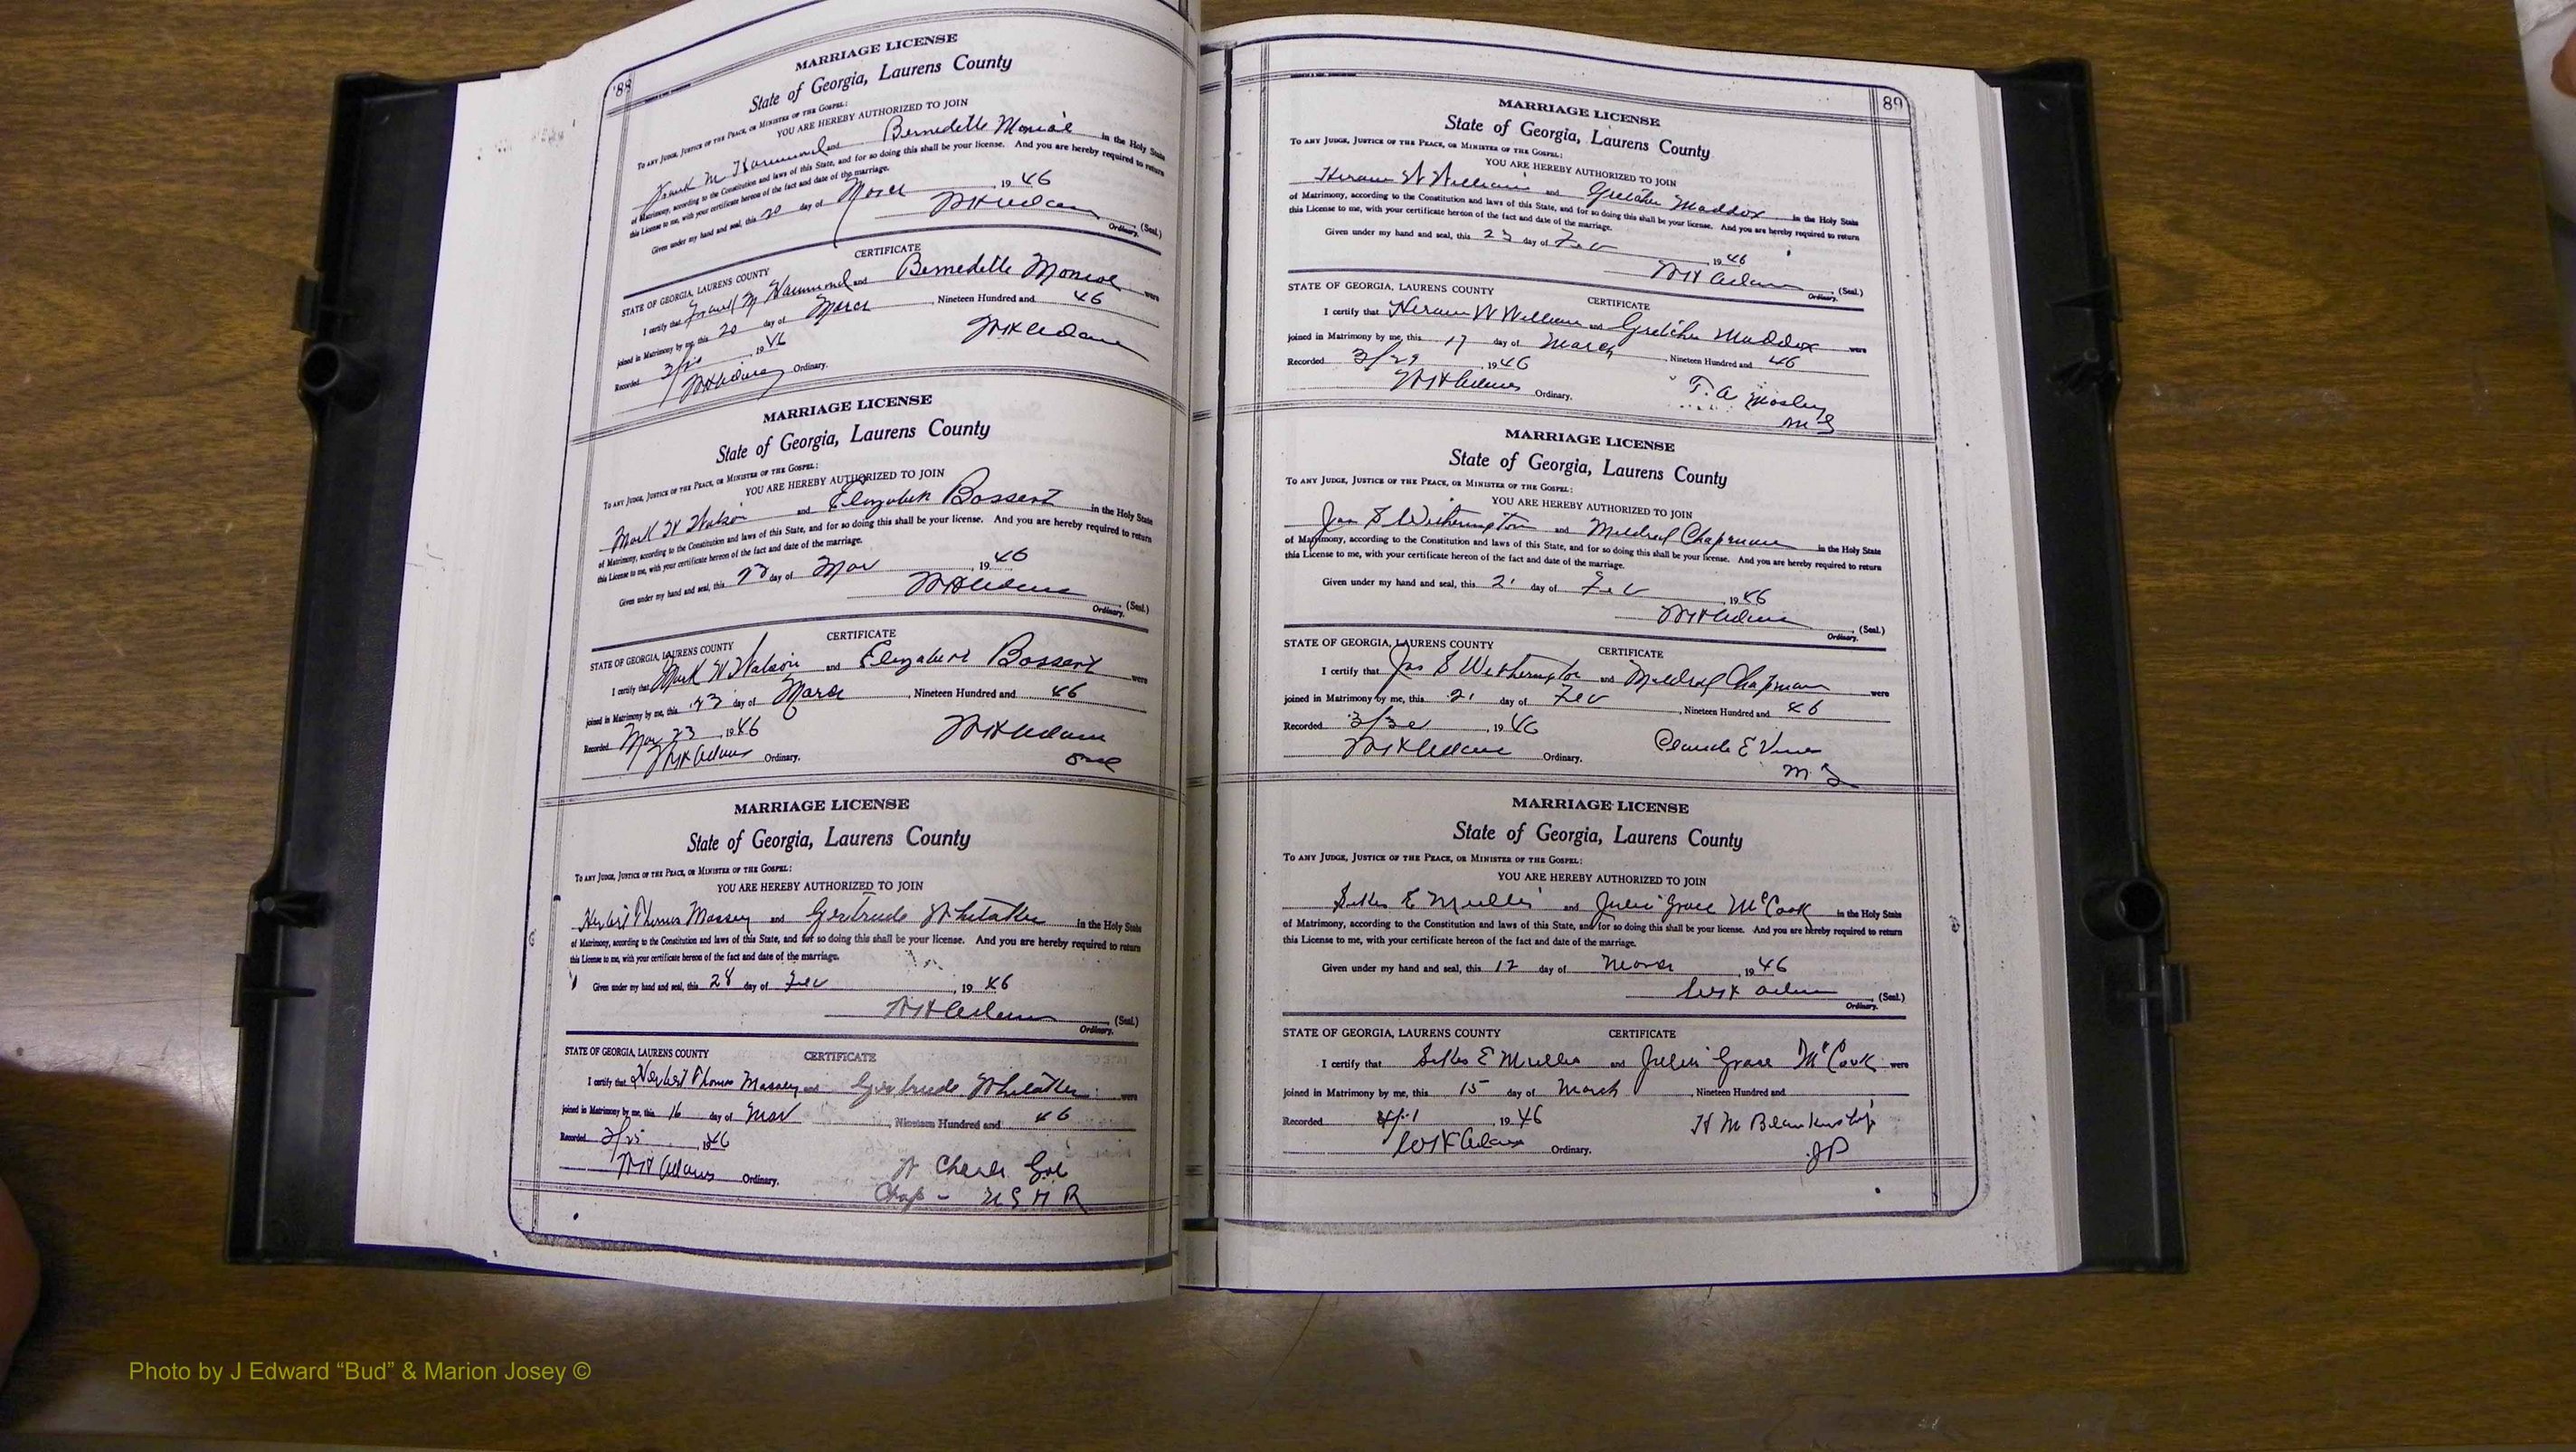 88
MARRIAGE LICENSE
State of Georgia, Laurens County
To ANY JUDGE, JUSTICE OF THE PEACE, OR MINISTER OF THE GOSPEL:
YOU ARE HEREBY AUTHORIZED TO JOIN
Frank M Hammond and Bernedette in the Holy State
of Matrimony, according to the Constitution and laws of this State, and for so doing this shall be your license. And you are hereby required to return
this License to me, with your certificate hereon of the fact and date of the marriage.
Given under my hand and seal, this 20 day of March, 1946
WH Adams (Seal.)
Ordinary.
CERTIFICATE
STATE OF GEORGIA, LAURENS COUNTY
I certify that Frank M Hammond and Bernedette were
joined in Matrimony by me, this 20 day of March, Nineteen Hundred and 46
Recorded 1946
WH Adams
WH Adams Ordinary.
MARRIAGE LICENSE
State of Georgia, Laurens County
To ANY JUDGE, JUSTICE OF THE PEACE, OR MINISTER OF THE GOSPEL:
YOU ARE HEREBY AUTHORIZED TO JOIN
Mark W Watson and Elizabeth Bossert in the Holy State
of Matrimony, according to the Constitution and laws of this State, and for so doing this shall be your license. And you are hereby required to return
this License to me, with your certificate hereon of the fact and date of the marriage.
Given under my hand and seal, this 23 day of Mar, 1946
WH Adams (Seal.)
Ordinary.
CERTIFICATE
STATE OF GEORGIA, LAURENS COUNTY
I certify that Mark W Watson and Elizabeth Bossert were
joined in Matrimony by me, this 23 day of March, Nineteen Hundred and 46
Recorded Mar 23, 1946
WH Adams
WH Adams Ordinary.
MARRIAGE LICENSE
State of Georgia, Laurens County
To ANY JUDGE, JUSTICE OF THE PEACE, OR MINISTER OF THE GOSPEL:
YOU ARE HEREBY AUTHORIZED TO JOIN
Herbert Thomas Massey and Gertrude Whitaker in the Holy State
of Matrimony, according to the Constitution and laws of this State, and for so doing this shall be your license. And you are hereby required to return
this License to me, with your certificate hereon of the fact and date of the marriage.
Given under my hand and seal, this 28 day of Feb, 1946
WH Adams (Seal.)
Ordinary.
STATE OF GEORGIA, LAURENS COUNTY CERTIFICATE
I certify that Herbert Thomas Massey and Gertrude Whitaker were
joined in Matrimony by me, this 16 day of Mar, Nineteen Hundred and 46
Recorded 3/25, 1946
WH Adams Ordinary.
Chap - USNR
89
MARRIAGE LICENSE
State of Georgia, Laurens County
To ANY JUDGE, JUSTICE OF THE PEACE, OR MINISTER OF THE GOSPEL:
YOU ARE HEREBY AUTHORIZED TO JOIN
W Williams and Gretchen Maddox in the Holy State
of Matrimony, according to the Constitution and laws of this State, and for so doing this shall be your license. And you are hereby required to return
this License to me, with your certificate hereon of the fact and date of the marriage.
Given under my hand and seal, this 23 day of Feb, 1946
WH Adams (Seal.)
Ordinary.
STATE OF GEORGIA, LAURENS COUNTY CERTIFICATE
I certify that W Williams and Gretchen Maddox were
joined in Matrimony by me, this 17 day of March, Nineteen Hundred and 46
Recorded 3/29, 1946
WH Adams Ordinary.
T. A Mosley
MG
MARRIAGE LICENSE
State of Georgia, Laurens County
To ANY JUDGE, JUSTICE OF THE PEACE, OR MINISTER OF THE GOSPEL:
YOU ARE HEREBY AUTHORIZED TO JOIN
Jas S Witherington and Mildred Chapman in the Holy State
of Matrimony, according to the Constitution and laws of this State, and for so doing this shall be your license. And you are hereby required to return
this License to me, with your certificate hereon of the fact and date of the marriage.
Given under my hand and seal, this 21 day of Feb, 1946
WH Adams (Seal.)
Ordinary.
STATE OF GEORGIA, LAURENS COUNTY CERTIFICATE
I certify that Jas S Witherington and Mildred Chapman were
joined in Matrimony by me, this 21 day of Feb, Nineteen Hundred and 46
Recorded 3/30, 1946
WH Adams Ordinary.
Claude E Vines
MG
MARRIAGE LICENSE
State of Georgia, Laurens County
To ANY JUDGE, JUSTICE OF THE PEACE, OR MINISTER OF THE GOSPEL:
YOU ARE HEREBY AUTHORIZED TO JOIN
Sikes E Mullis and Julia Grace McCook in the Holy State
of Matrimony, according to the Constitution and laws of this State, and for so doing this shall be your license. And you are hereby required to return
this License to me, with your certificate hereon of the fact and date of the marriage.
Given under my hand and seal, this 12 day of March, 1946
WH Adams (Seal.)
Ordinary.
STATE OF GEORGIA, LAURENS COUNTY CERTIFICATE
I certify that Sikes E Mullis and Julia Grace McCook were
joined in Matrimony by me, this 15 day of March, Nineteen Hundred and
Recorded 4/1, 1946
H M Blankenship
WH Adams Ordinary.
JP
Photo by J Edward “Bud” & Marion Josey ©